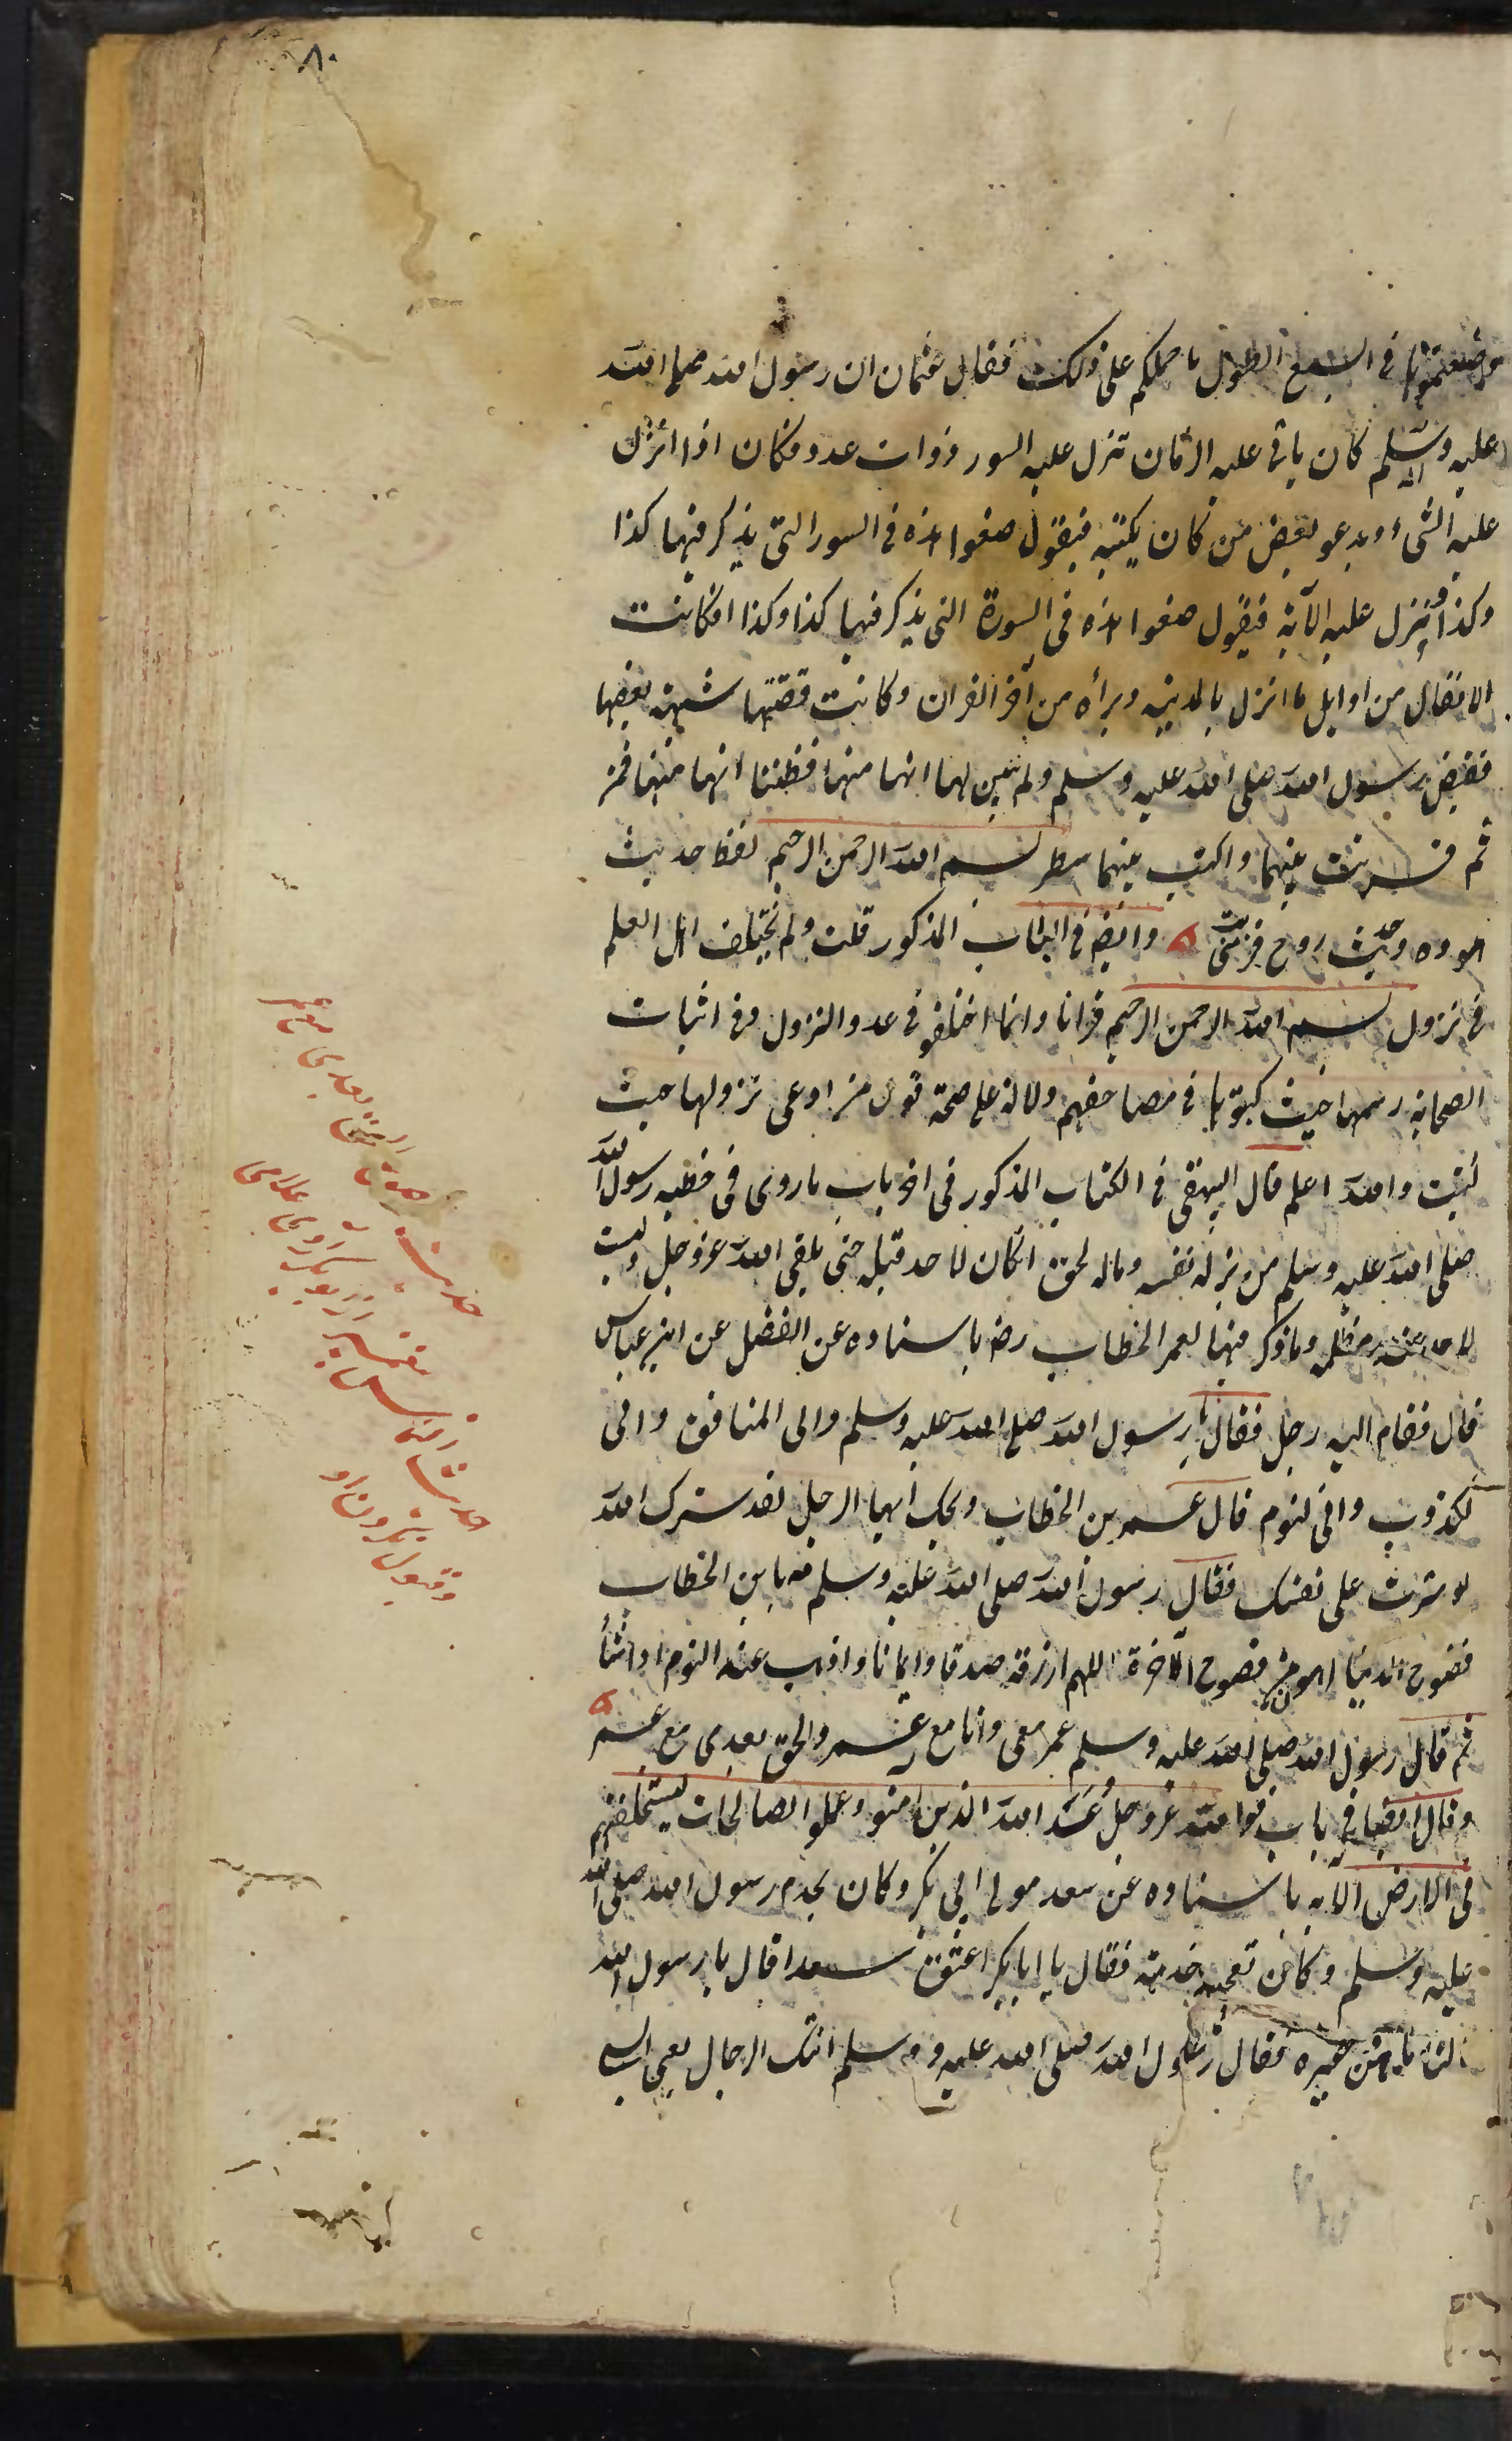 ٨٠
وضعتموها فی السبع الطول ما حملکم علی ذلک فقال عثمان ان رسول الله صلی الله
علیه وسلم کان یاتی علیه الزمان تنزل علیه السور ذوات عدد فکان اذا انزل
علیه الشیء ویدعو بعض من کان یکتبه فیقول ضعوا هذه فی السور التی یذکر فیها کذا
وکذا فینزل علیه الآیة فیقول ضعوا هذه فی السورة التی یذکر فیها کذا وکذا فکانت
الانفال من اوایل ما انزل بالمدینه وبراه من آخر القران وکانت قصتها شبیهة بقصتها
فقبض رسول الله صلی الله علیه وسلم ولم یبین لهما انها منها فظننا انها منها فمن
ثم قرنت بینهما واکتب بینهما سطر بسم الله الرحمن الرحیم لفظ حدیث
هوده وحدیث روح قریب وایضا فی الکتاب المذکور قلت ولم یختلف اهل العلم
فی نزول بسم الله الرحمن الرحیم قرانا وانما اختلفو فی عدد النزول وفی اثبات
الصحابة رسمها حیث کتبوها فی مصاحفهم دلالة علی صحة قول من ادعی نزولها حیث
ثبتت والله اعلم قال البیهقی فی الکتاب المذکور فی اخر باب ما روی فی خطبه رسول الله
صلی الله علیه وسلم من بذله نفسه وماله لحق ان کان لاحد قبله حتی یلقی الله عزوجل ولیست
لاحد عنده مظلمه وما ذکر فیها لعمر الخطاب رض باسناده عن الفضل عن ابن عباس
قال فقام الیه رجل فقال یا رسول الله صلی الله علیه وسلم والی المنافق وانی
لکذوب وانی لنوم قال عمر بن الخطاب ویحک ایها الرجل لقد سترک الله
لو سترت علی نفسک فقال رسول الله صلی الله علیه وسلم مه یا بن الخطاب
فضوح الدنیا اهون من فضوح الآخرة اللهم ارزقه صدقا وایمانا واذهب عنه النوم اذا شأ
ثم قال رسول الله صلی الله علیه وسلم عمر معی وانا مع عمر والحق بعدی مع عمر
وقال ایضا فی باب قول الله عزوجل وعد الله الذین امنو وعملوا الصالحات لیستخلفنهم
فی الارض الآیه باسناده عن سعد مولی ابی بکر وکان یخدم رسول الله صلی الله
علیه وسلم وکان تعجبه خدمته فقال یا ابا بکر اعتق سعدا قال یا رسول الله
ما لنا ماهن غیره فقال رسول الله صلی الله علیه وسلم اتتک الرجال یعنی السبی
حدیث
بعدی مع عمر